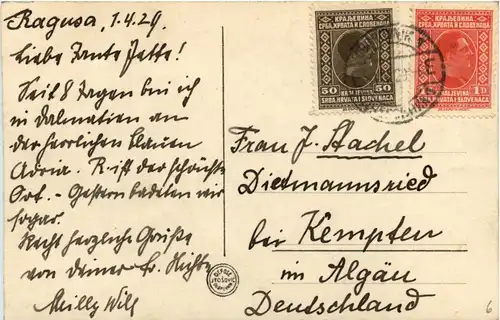 Ragusa, 1.4.29.
Liebe Tante Jette!
Seit 8 Tagen bin ich
in Dalmatien an
der herrlichen blauen
Adria. R. ist der schönste
Ort. - Gestern badeten wir
sogar.
Recht herzliche Grüße
von Deiner Nichte
Milly Will
КРАЉЕВИНА
СРБА, ХРВАТА И СЛОВЕНАЦА
50 50
KRALJEVINA
SRBA, HRVATA I SLOVENACA
КРАЉЕВИНА
СРБА, ХРВАТА И СЛОВЕНАЦА
1 1D
KRALJEVINA
SRBA, HRVATA I SLOVENACA
Frau J. Stachel
Dietmannsried
bei Kempten
im Algäu
Deutschland
6